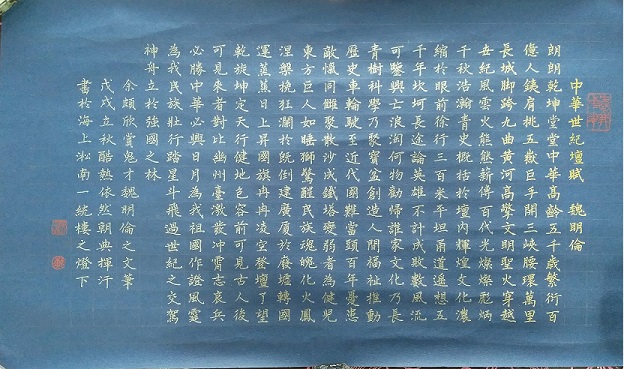 中華世紀壇賦　魏明倫
朗朗乾坤堂堂中華高齡五千歲繁衍百
億人銕肩挑五嶽巨手開三峽腰環萬里
長城脚跨九曲黃河高擎文明聖火穿越
世紀風雲火能熊薪傳百代光燦燦彪炳
千秋浩瀚青史概括於壇內輝煌文化濃
縮於眼前徐行三百米平坦甬道遥想五
千年坎坷長途論英雄不計成敗數風流
可鑒興亡浪淘何物勸歸誰家文化乃長
青樹科學乃聚寶盆創造人間福祉推動
歷史車輪駛至近代國難當頭百年憂患
敵愾同讎聚散沙成鐵塔變弱者為健兒
東方巨人如睡獅驚醒民族魂魄化火鳳
涅槃挽狂瀾於既倒建廣厦於廢墟轉國
運蒸蒸日上昇國旗冉冉凌空登壇了望
乾旋坤定天行健地色容前可見古人後
可見來者對比幽州臺歌散冲霄志哀兵
必勝中華必興日月為我祖國作證風雲
為我民族壯行踏星斗飛過世紀之交駕
神舟立於強國之林
余頗欣賞鬼才魏明倫之文筆
戊戌立秋酷熱依然朝典揮汗
書於海上淞南一統樓之燈下